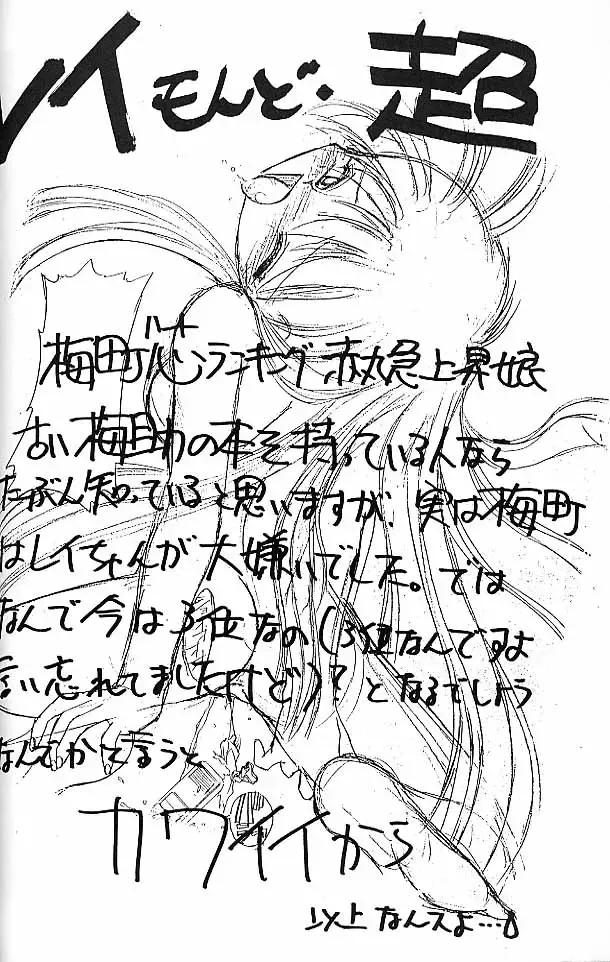 レイもんど・超
梅町ハート心ランキング赤丸急上昇娘
古い梅町の本を持っている人なら
たぶん知っていると思いますが、実は梅町
はレイちゃんが大嫌いでした。では
なんで今は3位なの(3位なんですよ
言い忘れてましたけど)?となるでしょう
なんでかと言うと
カワイイから
以上なんスよ…。